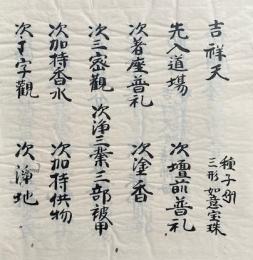 吉祥天
種子𑖫𑖿𑖨𑖱
三形如意宝珠
先入道場 次壇前普礼
次著座普礼 次塗香
次三密觀 次浄三業三部被甲
次加持香水 次加持供物
次𑖨𑖽字觀 次浄地